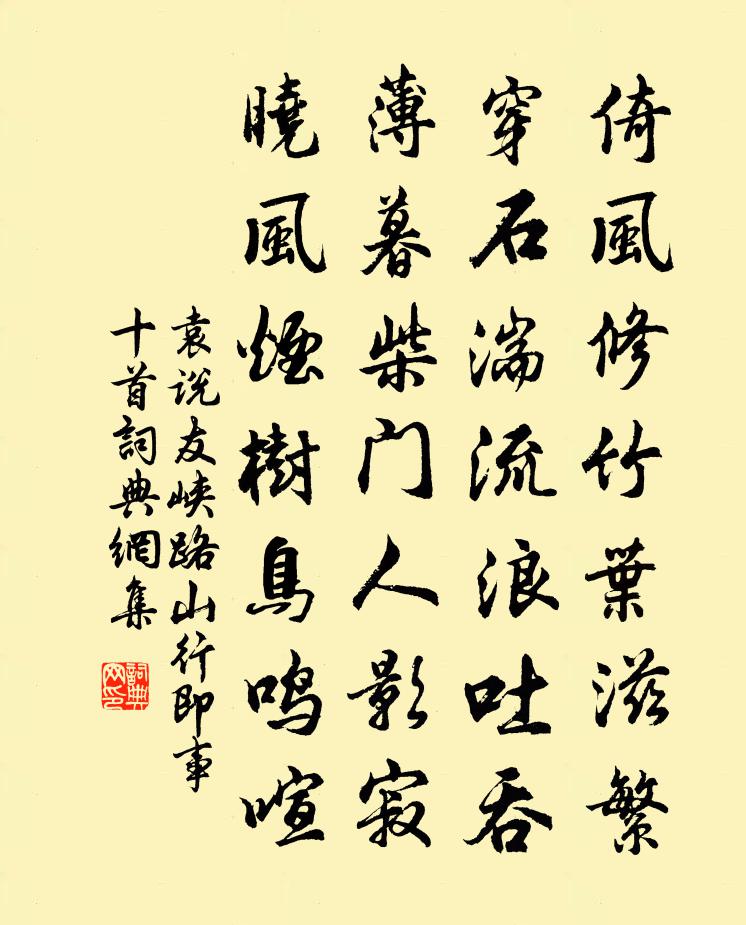 倚風修竹葉滋繁
穿石湍流浪吐吞
薄暮柴門人影寂
曉風煙樹鳥鳴喧
袁説友峽路山行即事
十首詞典網集
詞典
网印